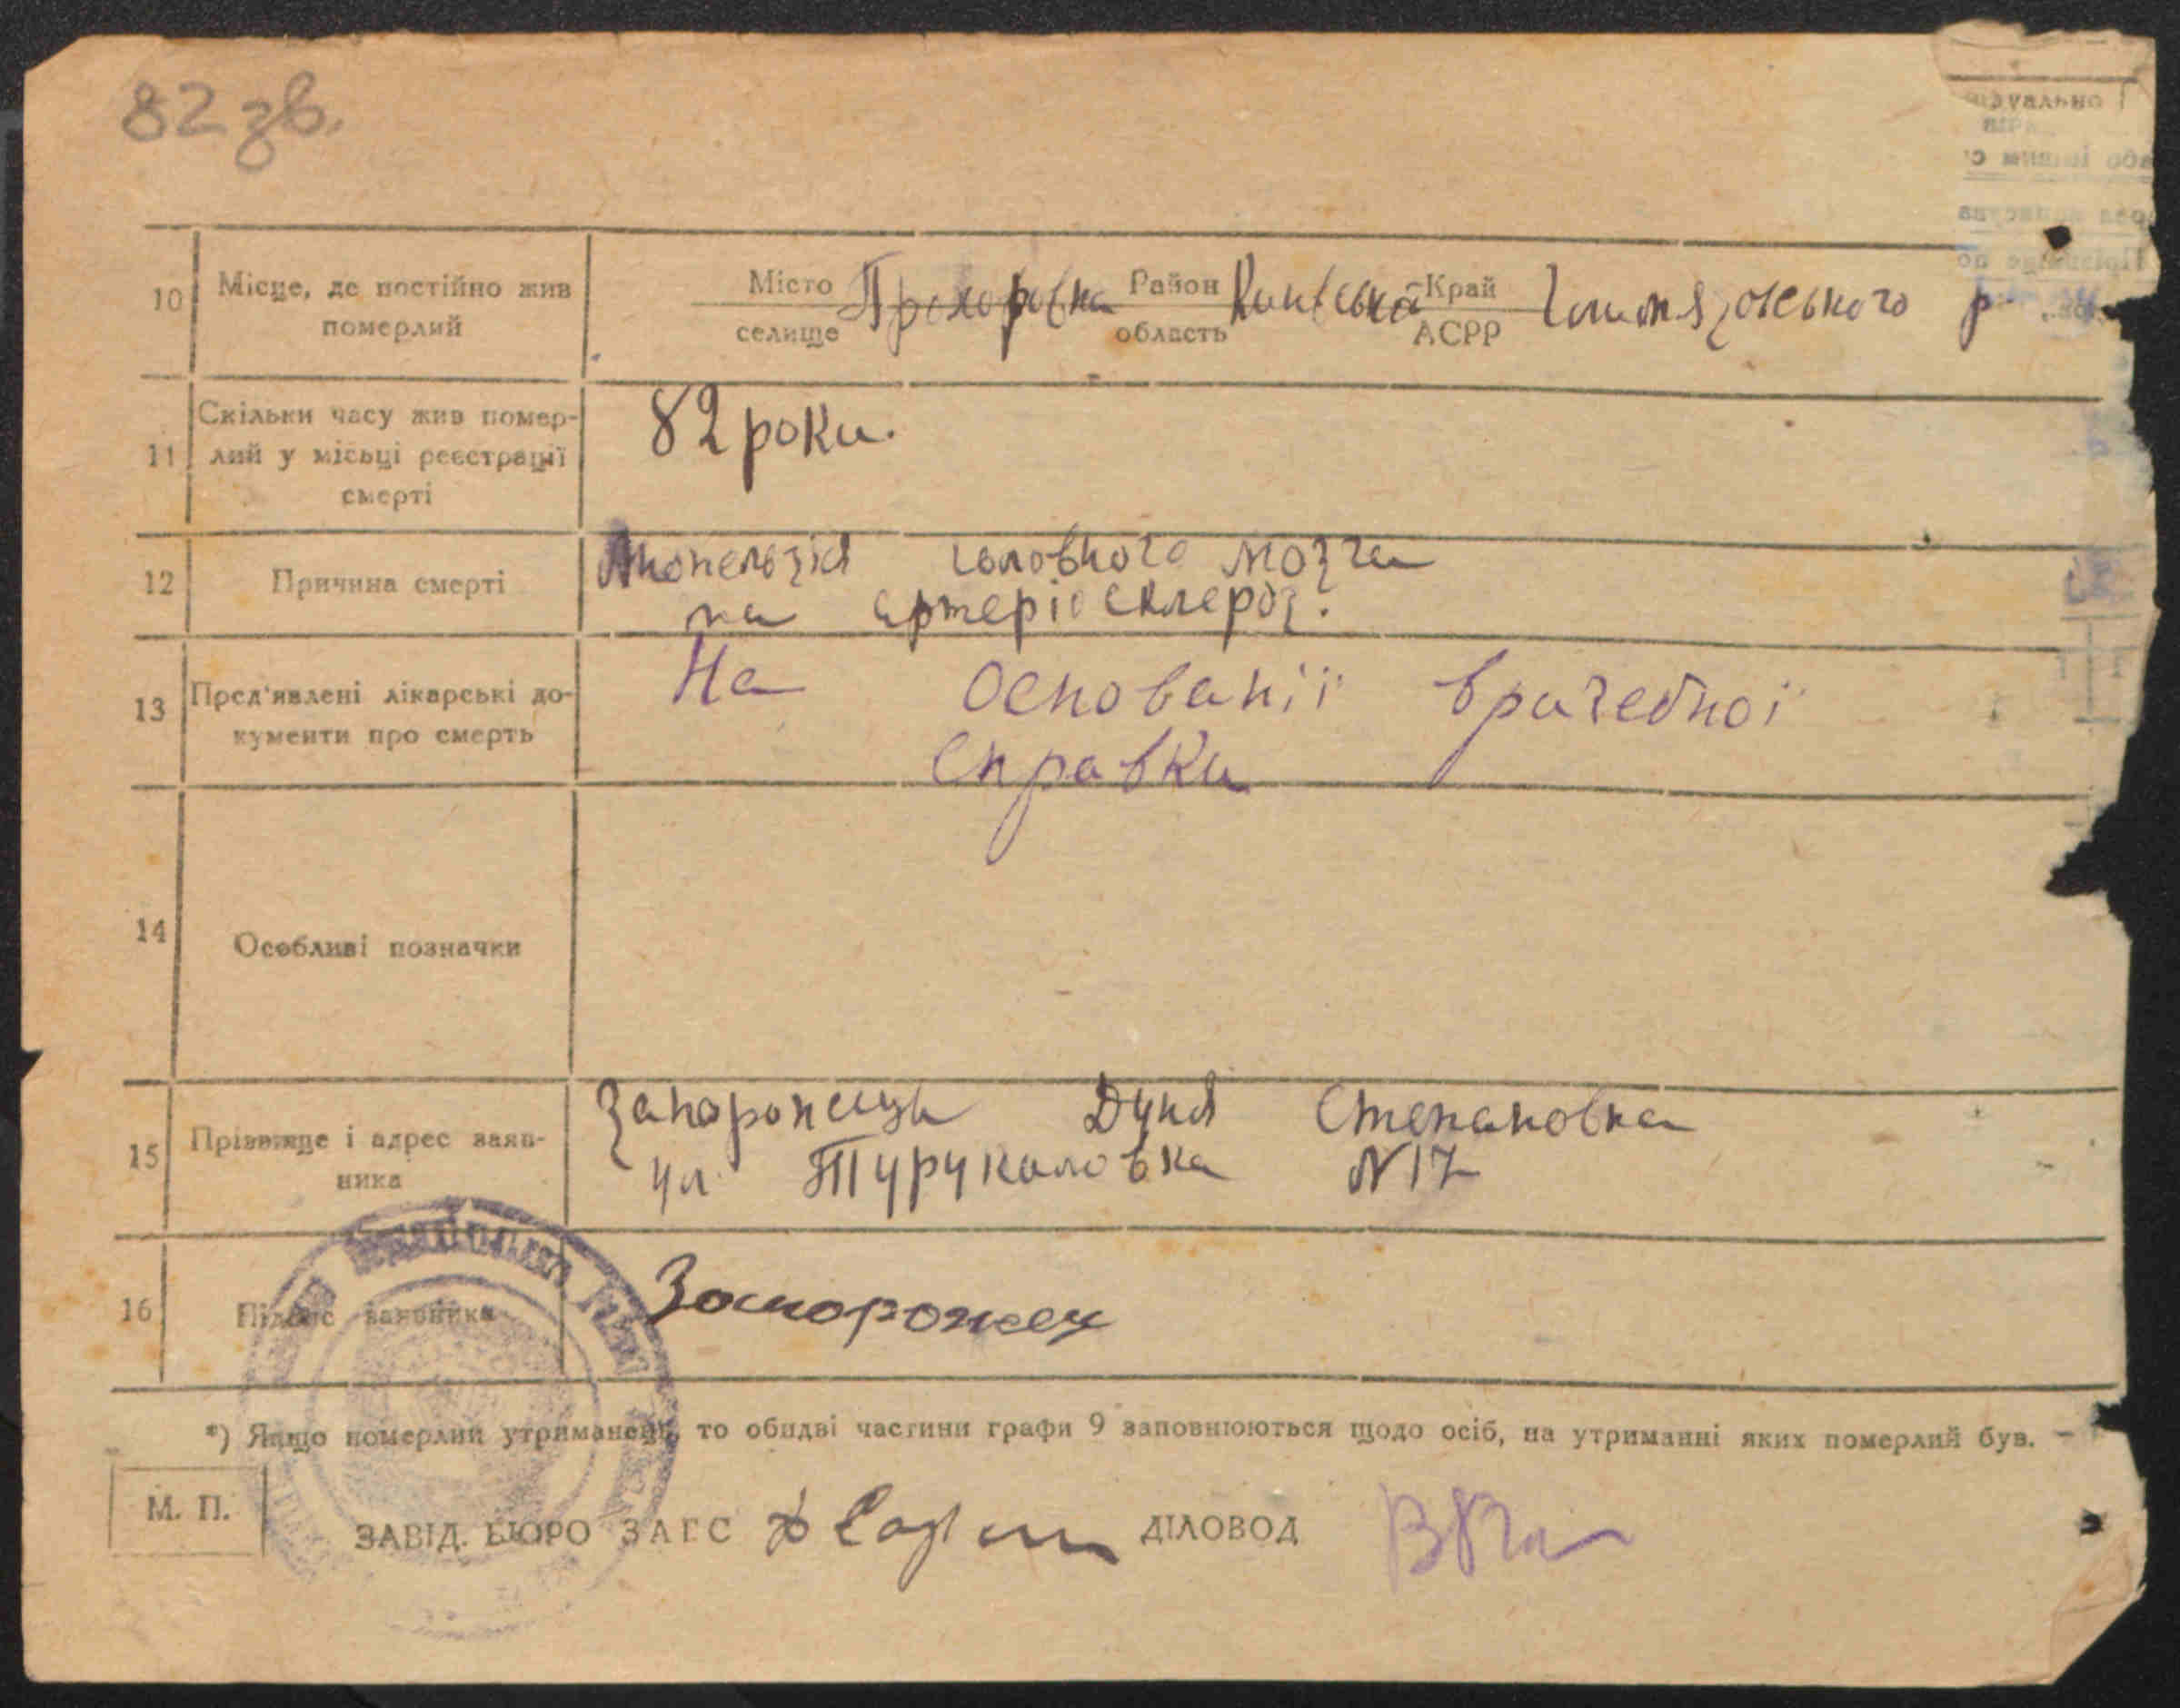 82 зв.
10 Місце, де постійно жив померлий
Місто селище Прохоровка Район область Київська Край АСРР Гельмязовського р
11 Скільки часу жив помер-
лий у місьці реєстрації
смерті
82 роки.
12 Причина смерті
головного мозга
на артеріосклероз.
13 Пред'явлені лікарські до-
кументи про смерть
На основанії врачебної
справки
14 Особливі позначки
15 Прізвище і адрес заяв-
ника
Запорожець Дуня Степановка
ул. Турукаловка N 17
16 Підпис заявника
Запорожец
*) Якщо померлий утриманець, то обидві частини графи 9 заповнюються щодо осіб, на утриманні яких померлий був.
М. П.
ЗАВІД. БЮРО ЗАГС ДІЛОВОД